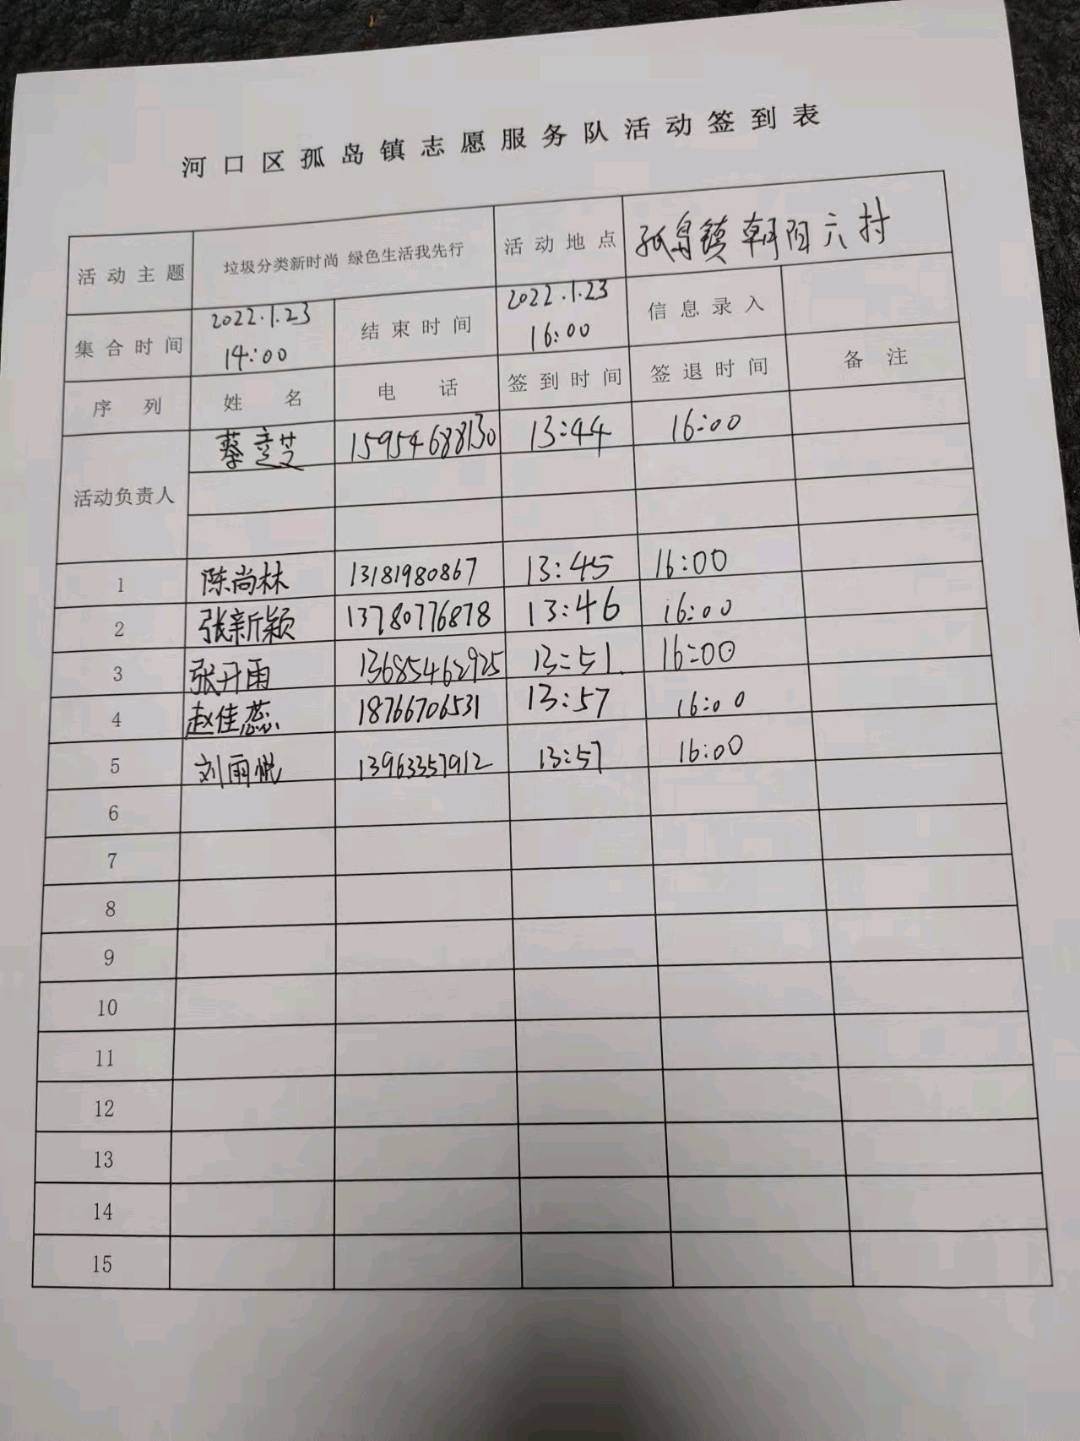 河口区孤岛镇志愿服务队活动签到表
活动主题 垃圾分类新时尚 绿色生活我先行 活动地点 孤岛镇朝阳六村
集合时间 2022.1.23 14:00 结束时间 2022.1.23 16:00 信息录入
序列 姓名 电话 签到时间 签退时间 备注
活动负责人 蔡立芝 15954688130 13:44 16:00
1 陈尚林 13181980867 13:45 16:00
2 张新颖 13780776878 13:46 16:00
3 张开雨 13685462925 13:51 16:00
4 赵佳蕊 18766706531 13:57 16:00
5 刘雨悦 13963357912 13:57 16:00
6
7
8
9
10
11
12
13
14
15